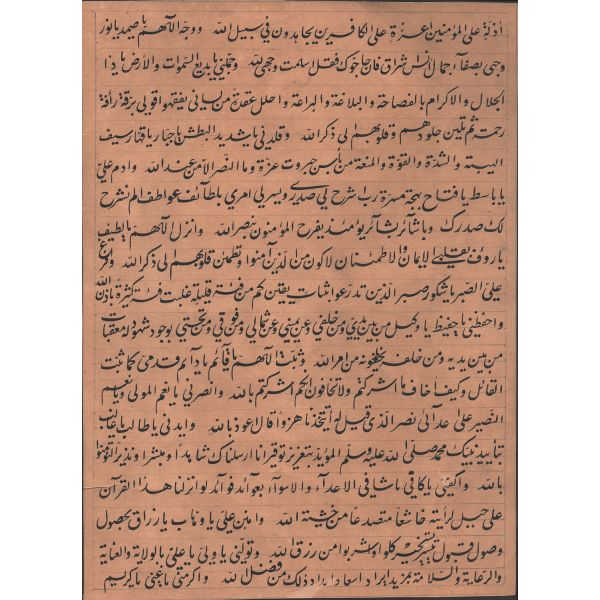 اذلة على المؤمنين اعزة على الكافرين يجاهدون في سبيل الله ووجه اللهم يا صمد يا نور
وجهي بصفاء جمال انس اشراق فان حاجوك فقل اسلمت وجهي لله وجملني يا بديع السموات والارض يا ذا
الجلال والاكرام بالفصاحة والبلاغة والبراعة واحلل عقدة من لساني يفقهوا قولي برقة رأفة
رحمة ثم تلين جلودهم وقلوبهم الى ذكر الله وقلدني يا شديد البطش يا جبار يا قهار سيف
الهيبة والشدة والقوة والمنعة من بأس جبروت عزة وما النصر الا من عند الله وادم علي
يا باسط يا فتاح بهجة مسرة رب اشرح لي صدري ويسر لي امري بلطائف عواطف الم نشرح
لك صدرك وبشائر بشائر يومئذ يفرح المؤمنون بنصر الله وانزل اللهم يا لطيف
يا رؤف بقلبي الايمان والاطمئنان لاكون من الذين آمنوا وتطمئن قلوبهم الى ذكر الله وافرغ
على الصبر يا شكور صبر الذين تدرعوا ثبات يقين كم من فئة قليلة غلبت فئة كثيرة باذن الله
واحفظني يا حفيظ يا وكيل من بين يدي ومن خلفي وعن يميني وعن شمالي ومن فوقي ومن تحتي بوجود شهود له معقبات
من بين يديه ومن خلفه يحفظونه من امر الله وثبت اللهم يا قائم يا دائم قدمي كما ثبت
القائل وكيف اخاف ما اشركتم ولا تخافون انكم اشركتم بالله وانصرني يا نعم المولى ويا نعم
النصير على اعدائي نصر الذي قيل له أتتخذنا هزوا قال اعوذ بالله وايدني يا طالب يا غالب
بتأييد نبيك محمد صلى الله عليه وسلم المؤيد بتعزيز توقير انا ارسلناك شاهدا ومبشرا ونذيرا لتؤمنوا
بالله واكفني يا كافي يا شافي الاعداء والاسواء بعوائد فوائد لو انزلنا هذا القرآن
على جبل لرأيته خاشعا متصدعا من خشية الله وامنن علي يا وهاب يا رزاق بحصول
وصول قبول تيسير تسخير كلوا واشربوا من رزق الله وتولني يا ولي يا علي بالولاية والعناية
والرعاية والسلامة بمزيد ايراد اسعاد امداد ذلك من فضل الله واكرمني يا غني يا كريم